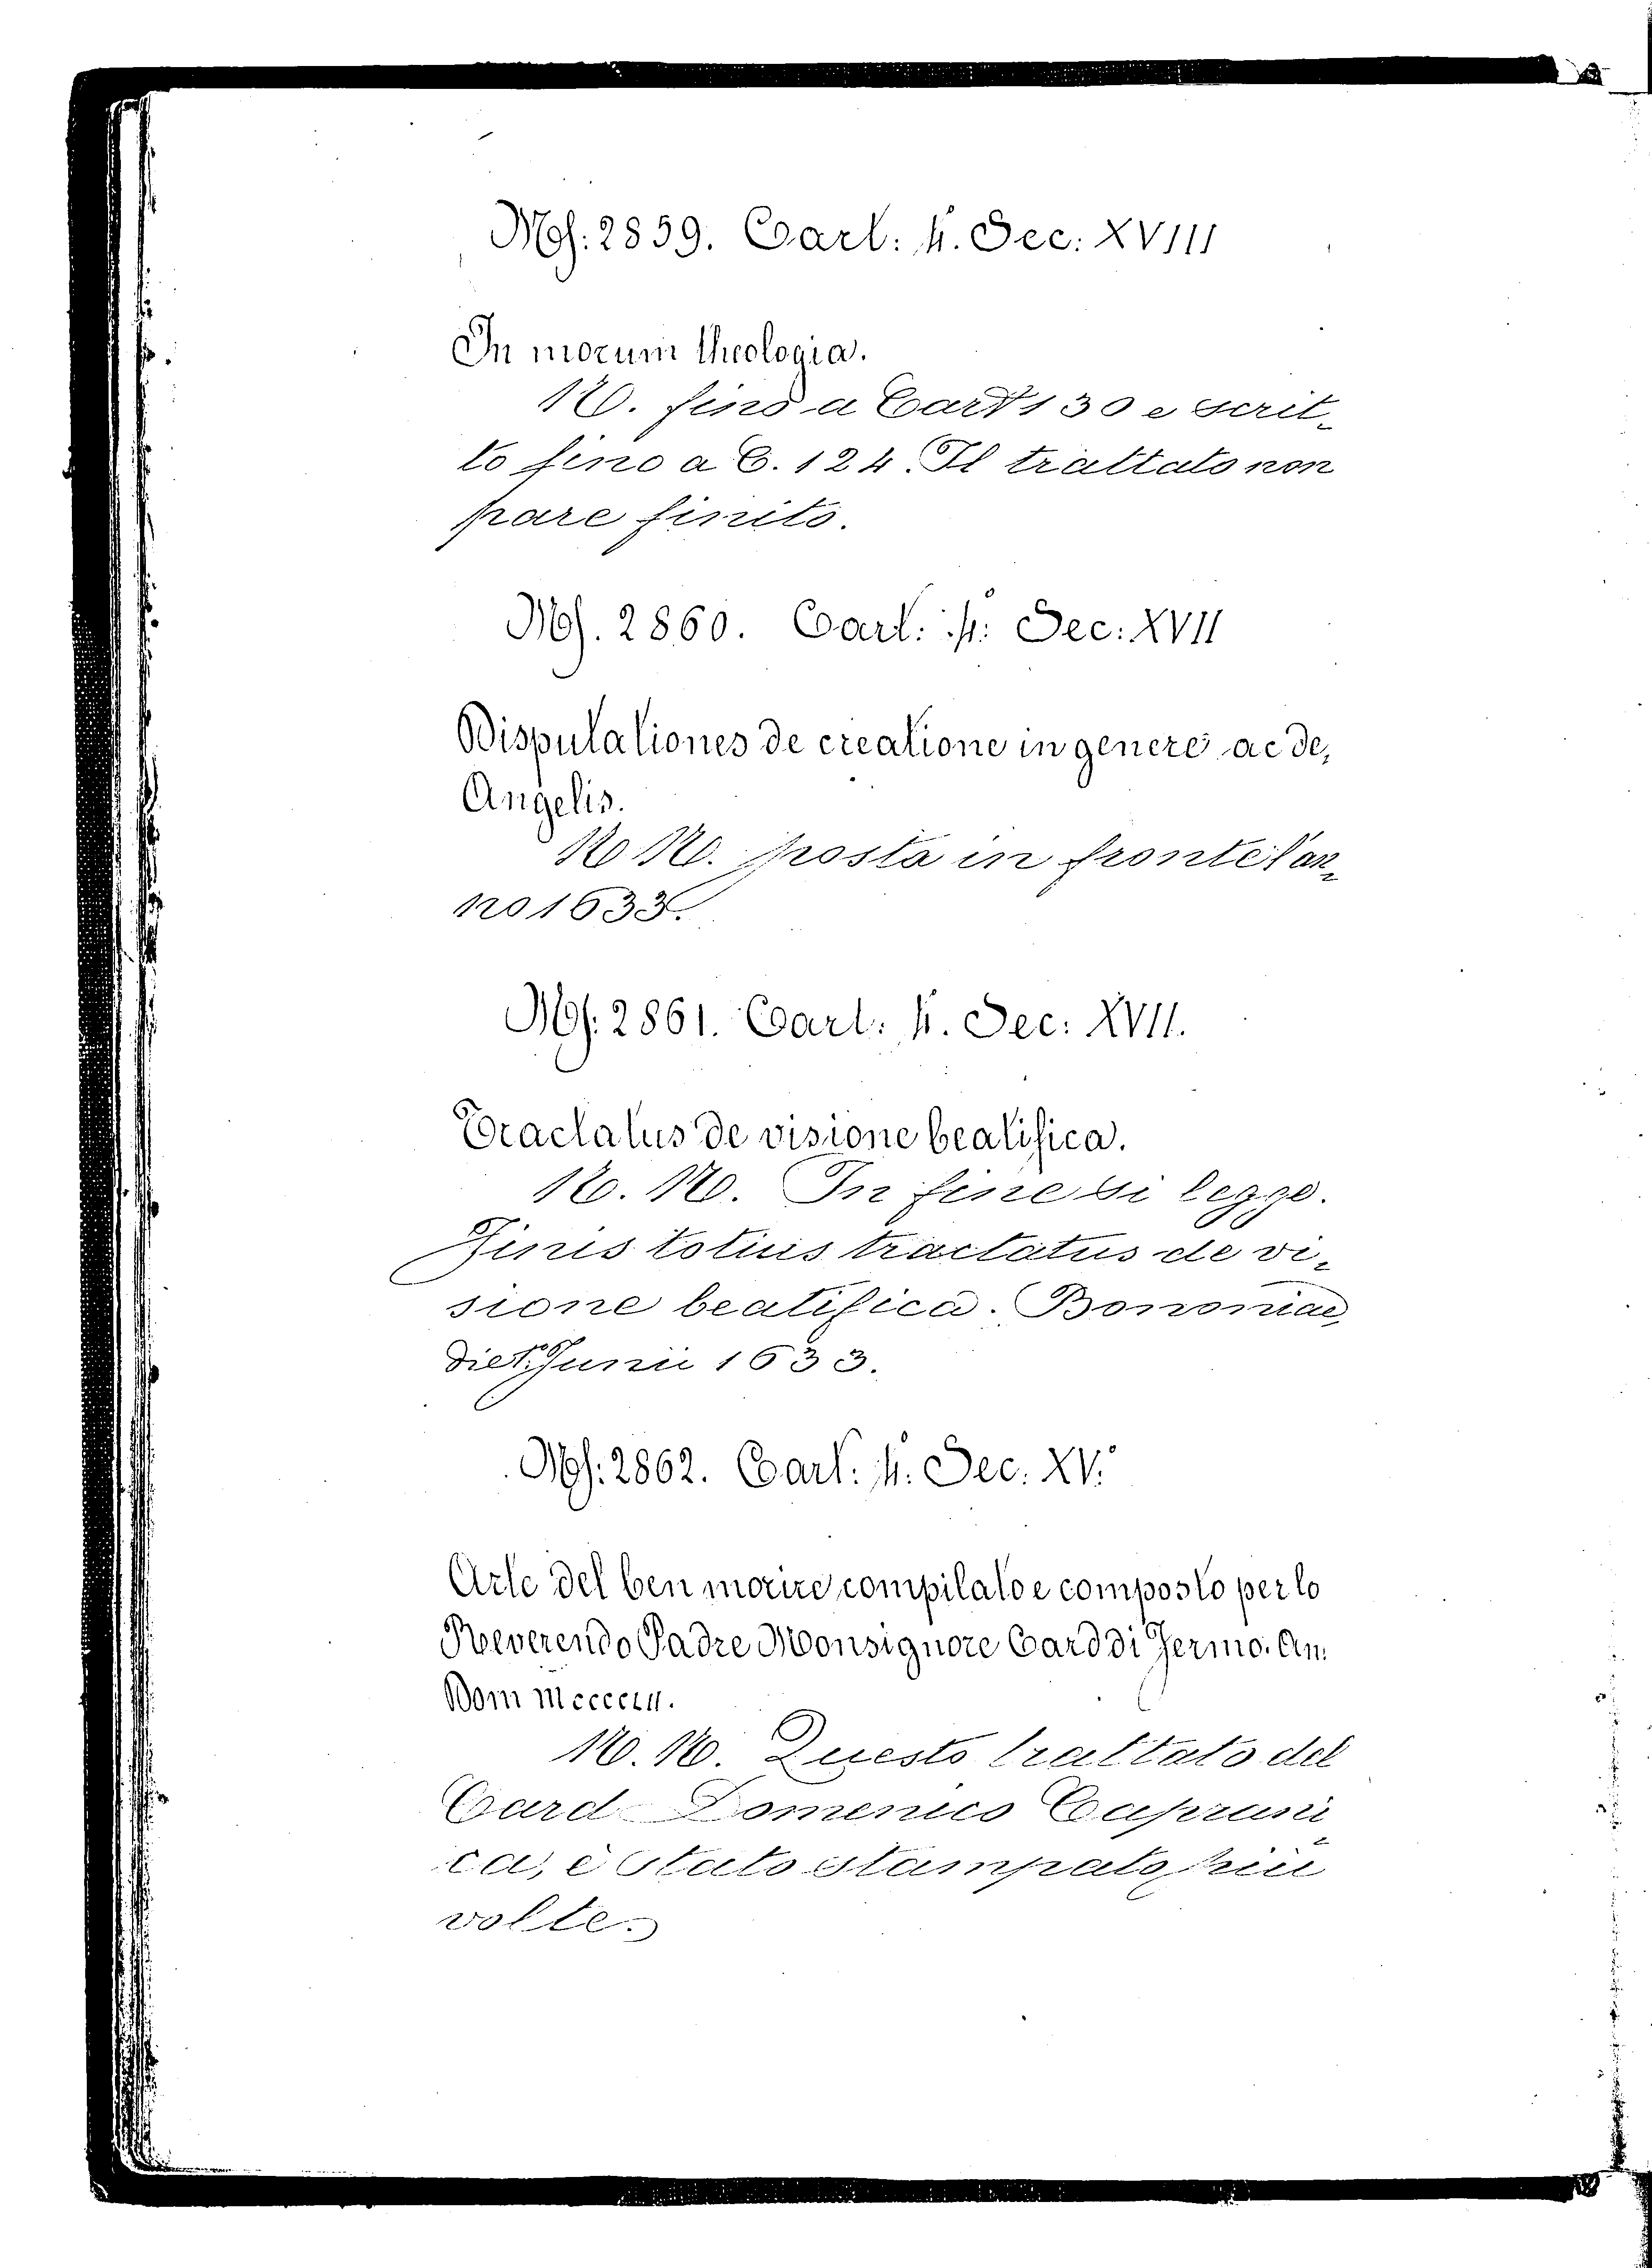 Ms: 2859. Cart: 4.° Sec: XVIII
In morum theologia.
N. fino a Cart 130 e scrit-
to fino a C. 124. Il trattato non
pare finito.
Ms. 2860. Cart: 4.° Sec: XVII
Disputationes de creatione in genere ac de
Angelis.
N N. posta in fronte l'an-
no 1633.
Ms: 2861. Cart: 4.° Sec: XVII.
Tractatus de visione beatifica.
N. N. In fine si legge.
Finis totius tractatus de vi-
sione beatifica. Bononiae
die 1. Junii 1633.
Ms: 2862. Cart: 4.° Sec: XV.
Arte del ben morire compilato e composto per lo
Reverendo Padre Monsignore Card di Fermo. An.
Dom Mcccclii.
N. N. Questo trattato del
Card Domenico Caprani-
ca, è stato stampato più
volte.